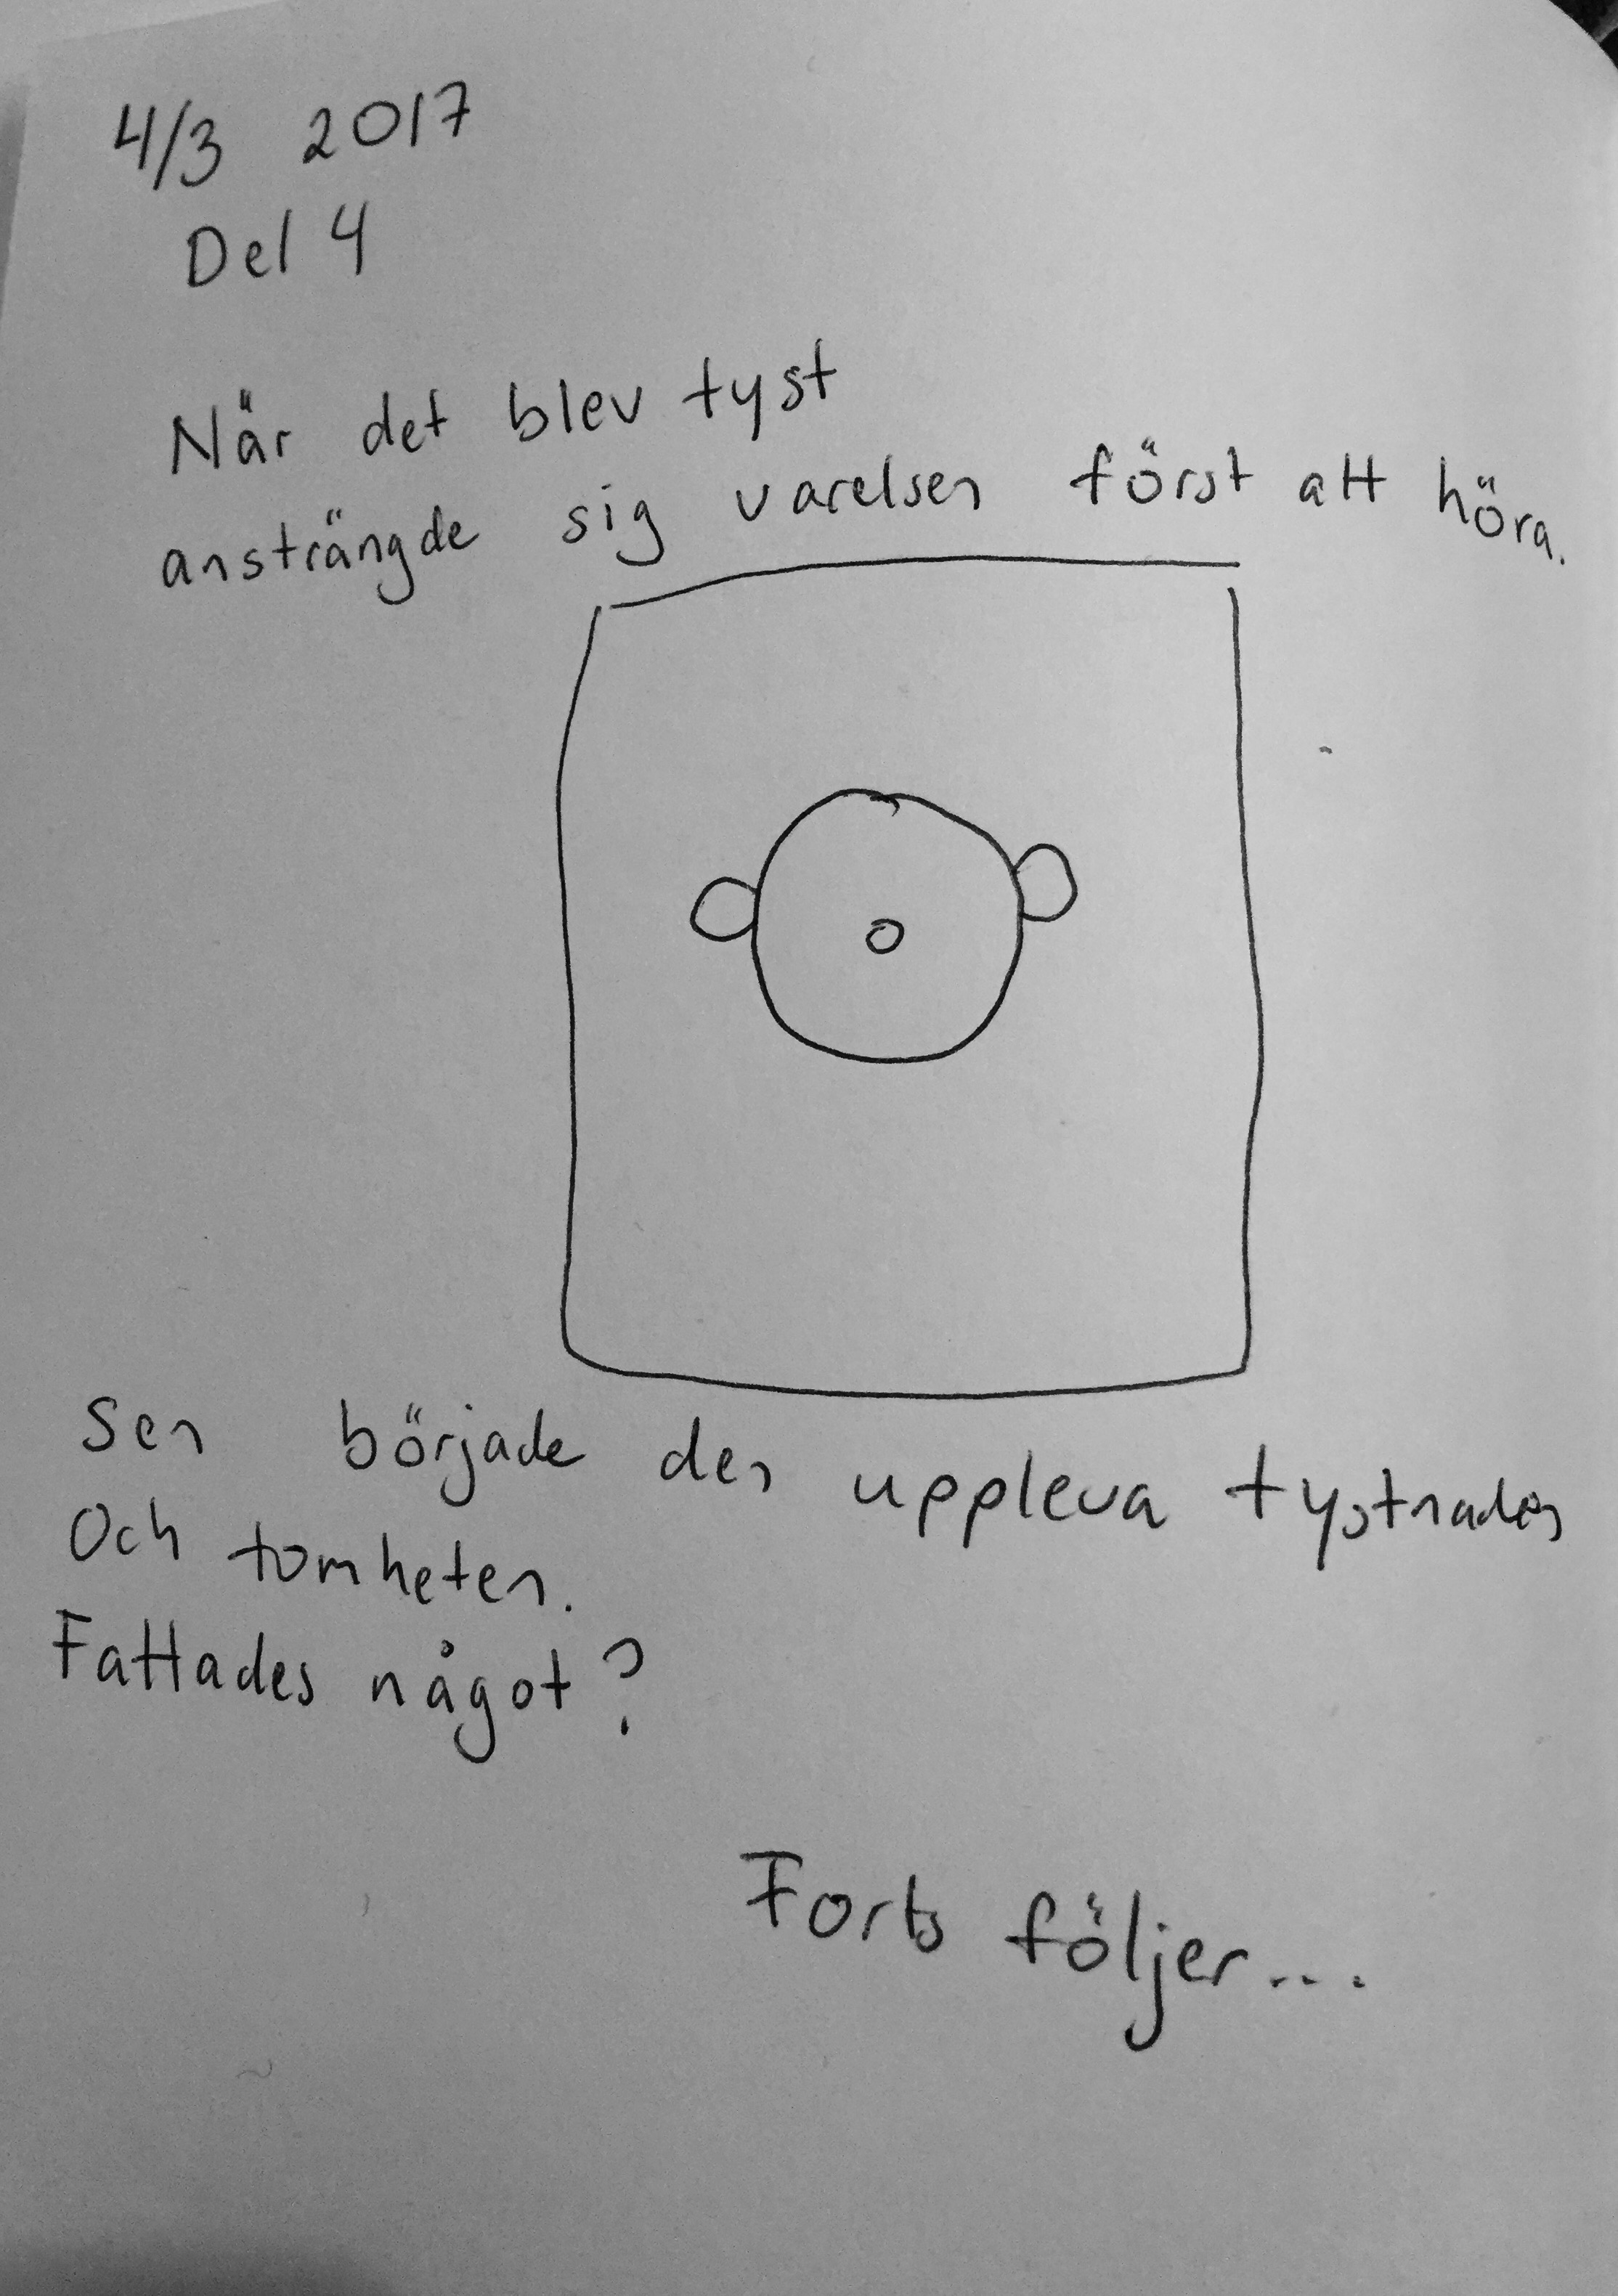 4/3 2017
Del 4
När det blev tyst
ansträngde sig varelsen först att höra.
Sen började den uppleva tystnaden
Och tomheten.
Fattades något?
Forts följer...